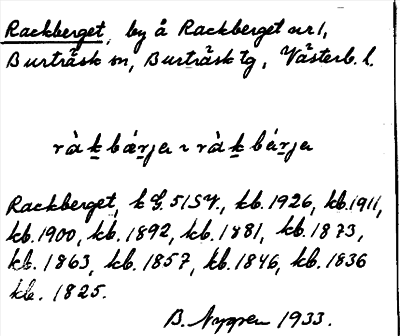 Rackberget, by å Rackberget nr 1,
Burträsk sn, Burträsk tg, Västerb. l.
ràk̲bár̲ja ~ ràk̲bár̲ja
Rackberget, kb. 1926, kb. 1911,
kb. 1900, kb. 1892, kb. 1881, kb. 1873,
kb. 1863, kb. 1857, kb. 1846, kb. 1836
kb. 1825.
B. Nygren 1933.